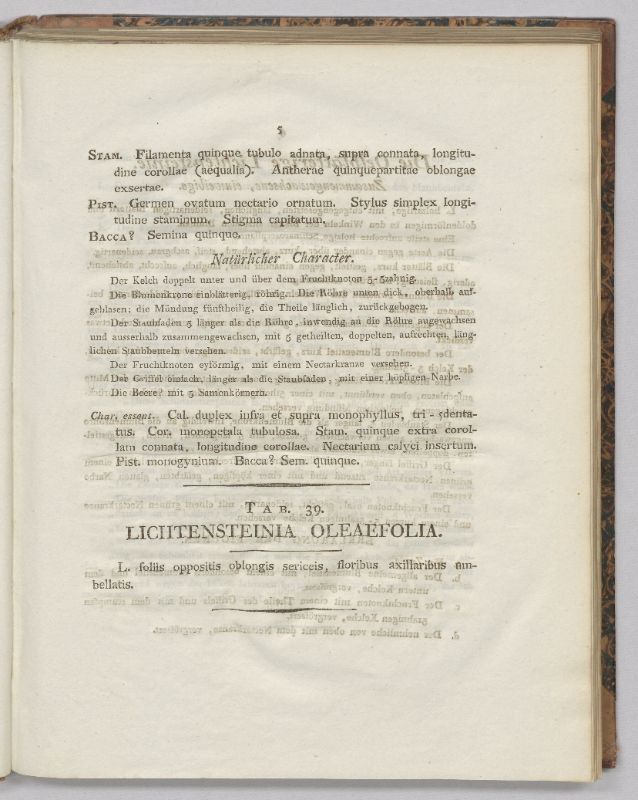 5
STAM. Filamenta quinque tubulo adnata, supra connata, longitu-
dine corollae (aequalia). Antherae quinquepartitae oblongae
exsertae.
PIST. Germen ovatum nectario ornatum. Stylus simplex longi-
tudine staminum. Stigma capitatum.
BACCA? Semina quinque.
Natürlicher Character.
Der Kelch doppelt unter und über dem Fruchtknoten 3-5zahnig.
Die Blumenkrone einblätterig, röhrig. Die Röhre unten dick, oberhalb auf-
geblasen; die Mündung fünftheilig, die Theile länglich, zurückgebogen.
Der Staubfaden 5 länger als die Röhre, inwendig an die Röhre angewachsen
und ausserhalb zusammengewachsen, mit 5 getheilten, doppelten, aufrechten, läng-
lichen Staubbeuteln versehen.
Der Fruchtknoten eyförmig, mit einem Nectarkranze versehen.
Der Griffel einfach, länger als die Staubfäden, mit einer köpfigen Narbe.
Die Beere? mit 5 Samenkörnern.
Char. essent. Cal. duplex infra et supra monophyllus, tri-5denta-
tus. Cor. monopetala tubulosa. Stam. quinque extra corol-
lam connata, longitudine corollae. Nectarium calyci insertum.
Pist. monogynium. Bacca? Sem. quinque.
TAB. 39.
LICHTENSTEINIA OLEAEFOLIA.
L. foliis oppositis oblongis sericeis, floribus axillaribus um-
bellatis.